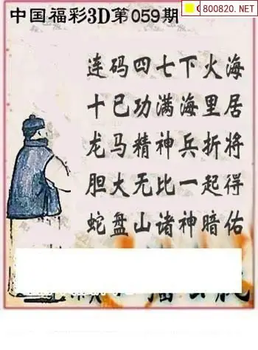 中国福彩3D第059期
800820.NET
连码四七下火海
十已功满海里居
龙马精神兵折将
胆大无比一起得
蛇盘山诸神暗佑